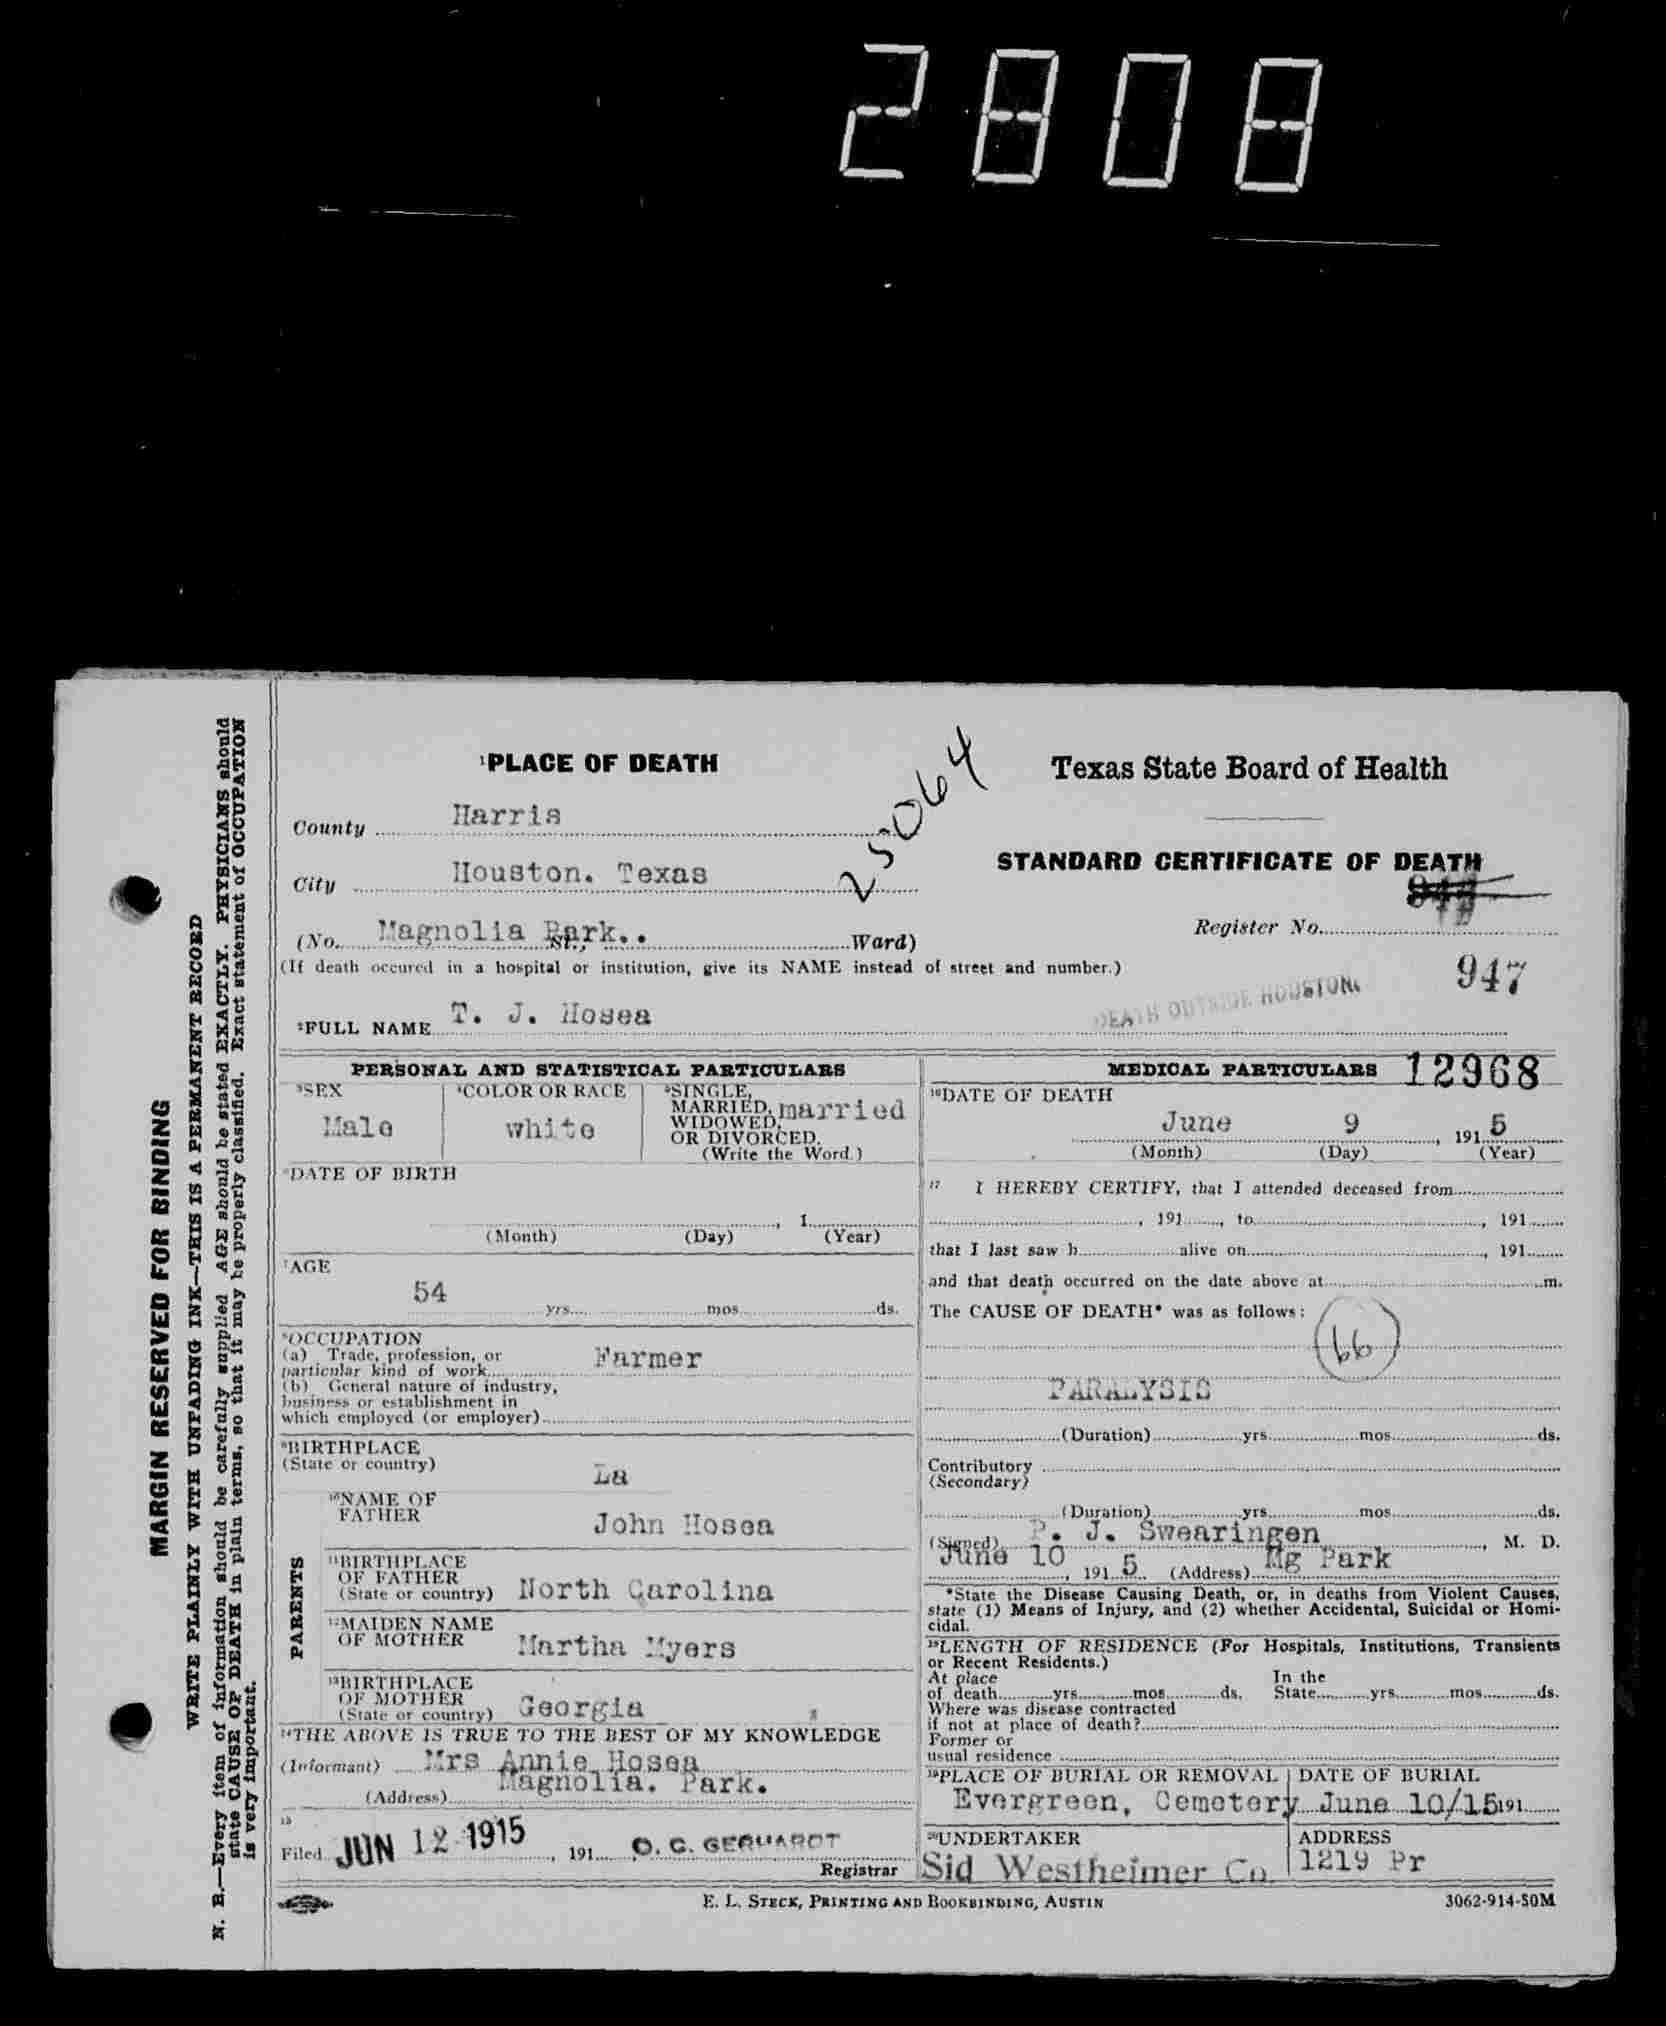 2808
MARGIN RESERVED FOR BINDING
WRITE PLAINLY WITH UNFADING INK—THIS IS A PERMANENT RECORD
N. B.—Every item of information should be carefully supplied AGE should be stated EXACTLY. PHYSICIANS should
state CAUSE OF DEATH in plain terms, so that it may be properly classified. Exact statement of OCCUPATION
is very important.
1PLACE OF DEATH
County Harris
City Houston. Texas
(No. Magnolia Park.. St., Ward)
(If death occured in a hospital or institution, give its NAME instead of street and number.)
2FULL NAME T. J. Hosea
25064
Texas State Board of Health
STANDARD CERTIFICATE OF DEATH
Register No.
947
DEATH OUTSIDE HOUSTON.
PERSONAL AND STATISTICAL PARTICULARS
3SEX
Male
4COLOR OR RACE
white
5SINGLE,
MARRIED, married
WIDOWED,
OR DIVORCED.
(Write the Word.)
6DATE OF BIRTH
, 1
(Month) (Day) (Year)
7AGE
54
yrs. mos. ds.
8OCCUPATION
(a) Trade, profession, or
particular kind of work Farmer
(b) General nature of industry,
business or establishment in
which employed (or employer)
9BIRTHPLACE
(State or country) La
PARENTS
10NAME OF
FATHER John Hosea
11BIRTHPLACE
OF FATHER
(State or country) North Carolina
12MAIDEN NAME
OF MOTHER Martha Myers
13BIRTHPLACE
OF MOTHER
(State or country) Georgia
14THE ABOVE IS TRUE TO THE BEST OF MY KNOWLEDGE
(Informant) Mrs Annie Hosea
(Address) Magnolia. Park.
15
Filed JUN 12 1915, 191 O. C. GERHARDT
Registrar
MEDICAL PARTICULARS 12968
16DATE OF DEATH
June 9, 191 5
(Month) (Day) (Year)
17 I HEREBY CERTIFY, that I attended deceased from
, 191 , to , 191
that I last saw h alive on , 191
and that death occurred on the date above at m.
The CAUSE OF DEATH* was as follows:
66
PARALYSIS
(Duration) yrs. mos. ds.
Contributory
(Secondary)
(Duration) yrs. mos. ds.
(Signed) P. J. Swearingen, M. D.
June 10, 191 5 (Address) Mg Park
*State the Disease Causing Death, or, in deaths from Violent Causes,
state (1) Means of Injury, and (2) whether Accidental, Suicidal or Homi-
cidal.
18LENGTH OF RESIDENCE (For Hospitals, Institutions, Transients
or Recent Residents.)
At place In the
of death yrs. mos. ds. State yrs. mos. ds.
Where was disease contracted
if not at place of death?
Former or
usual residence
19PLACE OF BURIAL OR REMOVAL DATE OF BURIAL
Evergreen, Cemetery June 10/15 191
20UNDERTAKER ADDRESS
Sid Westheimer Co. 1219 Pr
E. L. STECK, PRINTING AND BOOKBINDING, AUSTIN
3062-914-50M